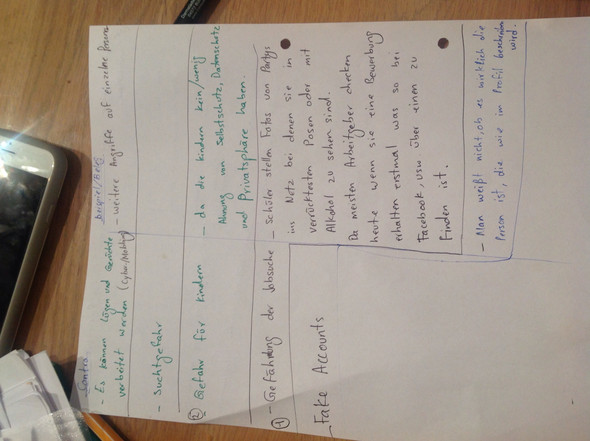 Contra
Beispiel/Beleg
- Es können Lügen und Gerüchte
verbeitet werden (Cyber Mobbing)
- weitere Angriffe auf einzelne Person
- Suchtgefahr
② Gefahr für Kindern
- da die Kindern kein/wenig
Ahnung von Selbstschutz, Datenschutz
und Privatsphäre haben.
① - Gefährdung der Jobsuche
- Schüler stellen Fotos von Partys
ins Netz bei denen sie in
verrücktesten Posen oder mit
Alkohol zu sehen sind.
Da meisten Arbeitgeber checken
heute wenn sie eine Bewerbung
erhalten erstmal was so bei
Facebook, usw über einem zu
Finden ist.
Fake Accounts
- Man weißt nicht, ob es wirklich die
Person ist, die wie im Profil beschrieben
wird.